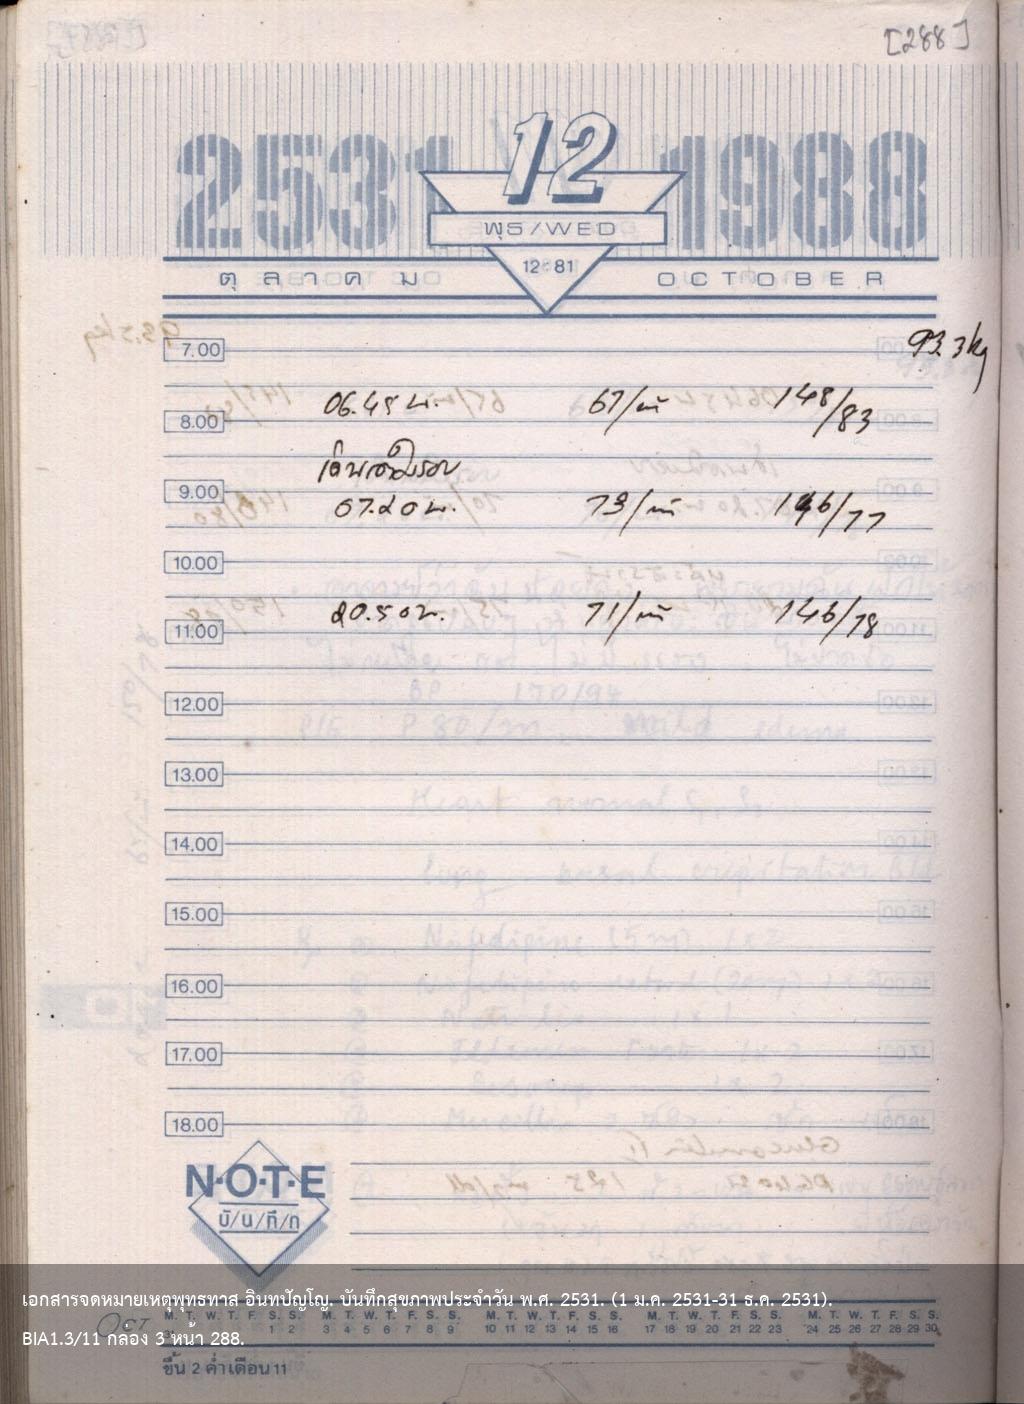 [288]
2531 12 1988
พุธ/WED
12:81
ตุลาคม OCTOBER
93.3kg
7.00
8.00 06.45 น. 67/ที 148/83
9.00 07.20 น. 73/ที 146/77
10.00
11.00 20.50 น. 71/ที 146/78
12.00
13.00
14.00
15.00
16.00
17.00
18.00
N·O·T·E
บั/น/ทึ/ก
เอกสารจดหมายเหตุพุทธทาส อินทปัญโญ. บันทึกสุขภาพประจำวัน พ.ศ. 2531. (1 ม.ค. 2531-31 ธ.ค. 2531).
OCT
M. T. W. T. F. S. S. M. T. W. T. F. S. S. M. T. W. T. F. S. S. M. T. W. T. F. S. S. M. T. W. T. F. S. S.
1 2 3 4 5 6 7 8 9 10 11 12 13 14 15 16 17 18 19 20 21 22 23 24 25 26 27 28 29 30
BIA1.3/11 กล่อง 3 หน้า 288.
ขึ้น 2 ค่ำเดือน 11